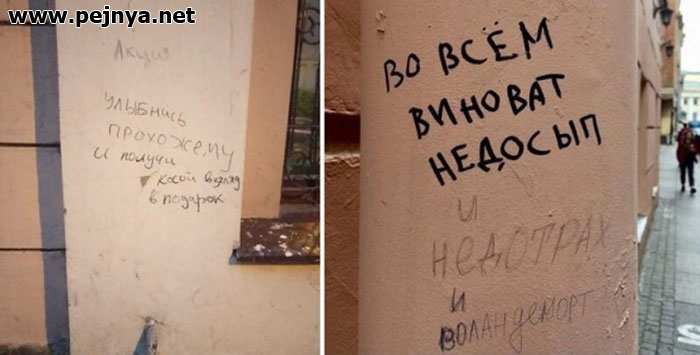 www.pejnya.net
Акция
улыбнись
прохожему
и получи
косой взгляд
в подарок
ВО ВСЁМ
ВИНОВАТ
НЕДОСЫП
и
НЕДОТРАХ
и
ВОЛАНДЕМОРТ